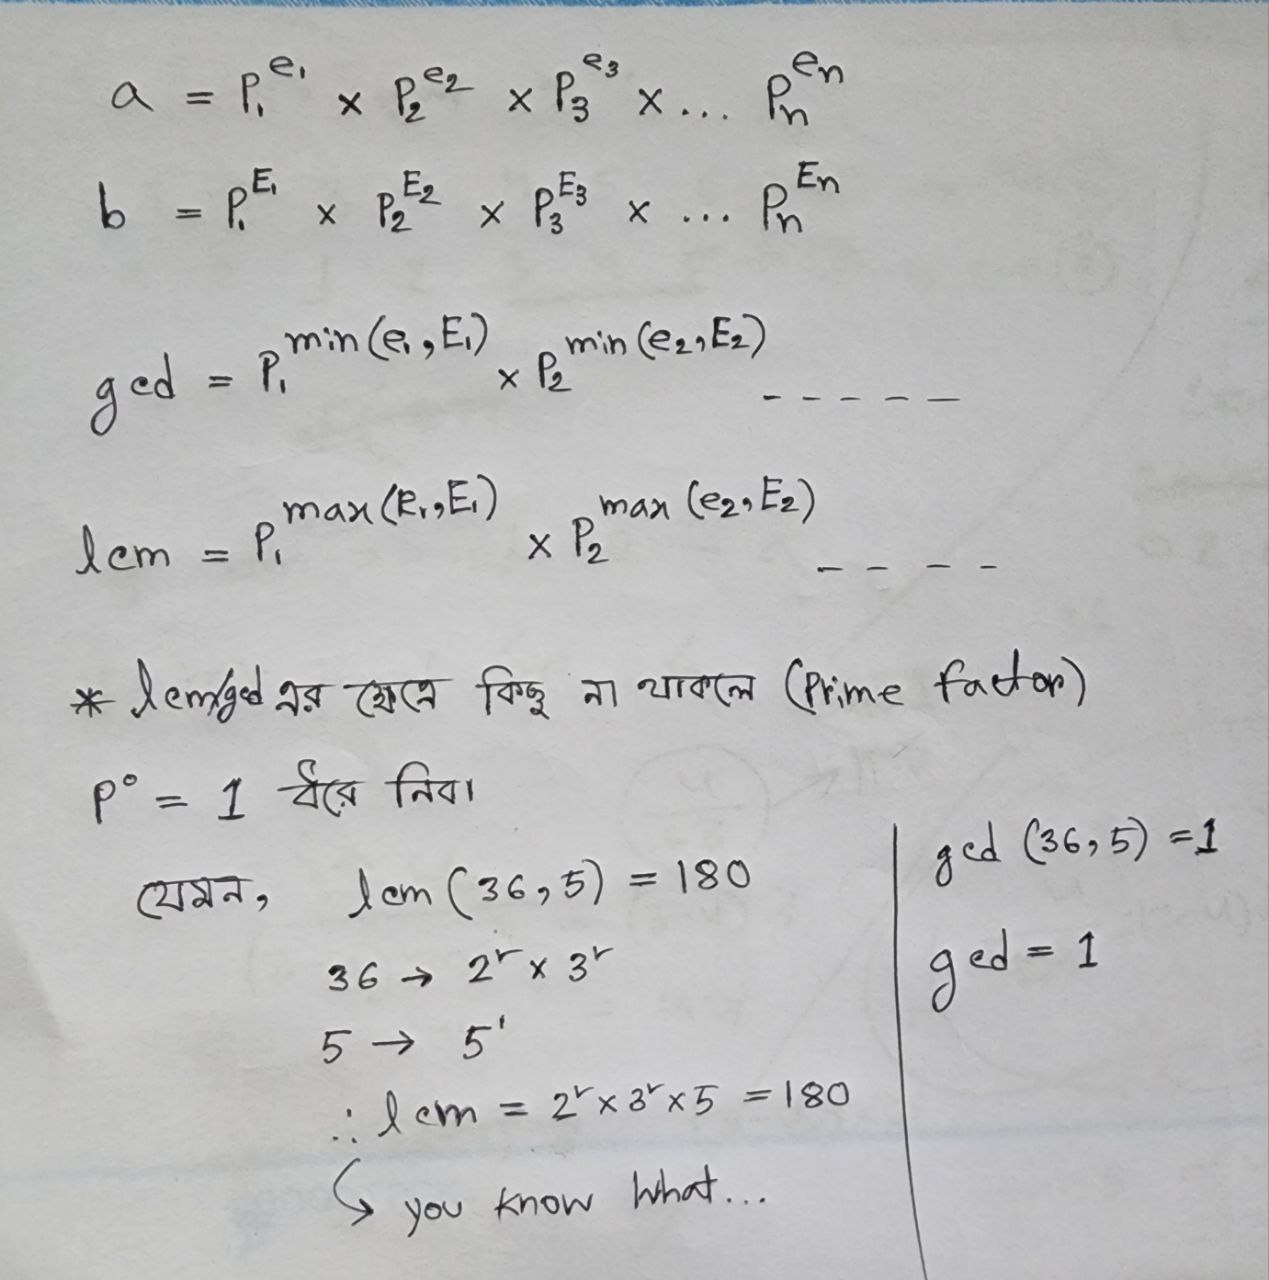 a = P₁^e₁ × P₂^e₂ × P₃^e₃ × ... Pₙ^en
b = P₁^E₁ × P₂^E₂ × P₃^E₃ × ... Pₙ^En
gcd = P₁^min(e₁, E₁) × P₂^min(e₂, E₂) -----
lcm = P₁^max(e₁, E₁) × P₂^max(e₂, E₂) ----
* lcm/gcd এর ক্ষেত্রে কিছু না থাকলে (Prime factor)
P⁰ = 1 ধরে নিবা
যেমন, lcm (36, 5) = 180
36 → 2² × 3²
5 → 5¹
∴ lcm = 2² × 3² × 5 = 180
↳ you know what...
gcd (36, 5) = 1
gcd = 1